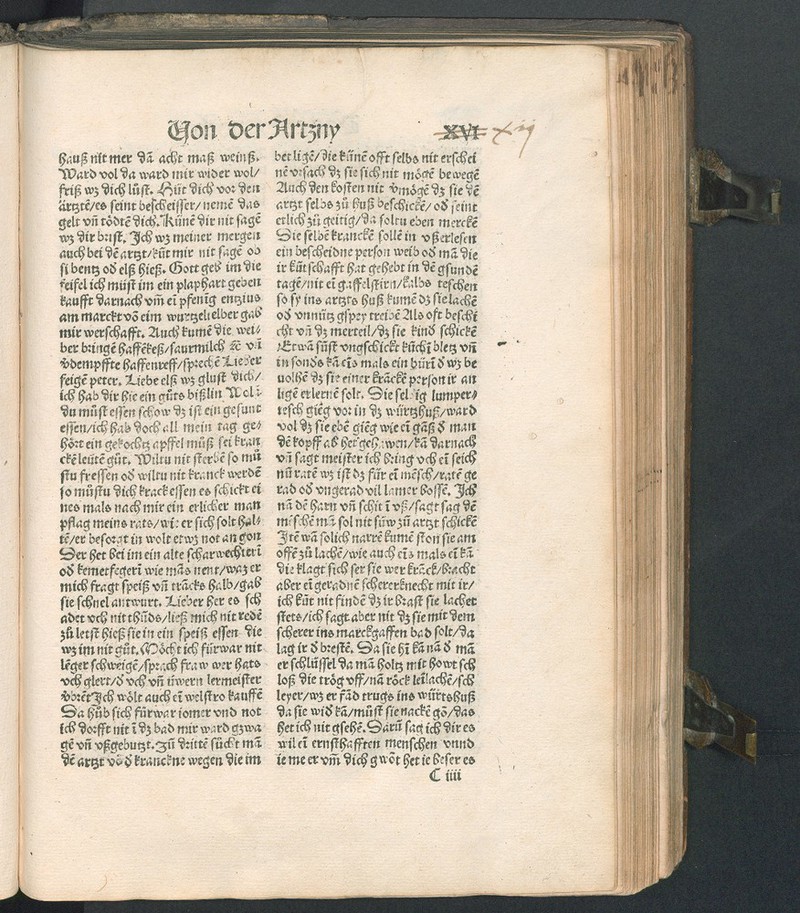 Von der Artzny
XVI xiij
hauß nit mer dā acht maß weinß.
Ward vol da ward mir wider wol/
friß wz dich lüst. Hüt dich vor den
ärtztē/es seint bescheisser/nemē das
gelt vñ tödtē dich. Künē dir nit sagē
wz dir brist. Ich wz meiner mergen
auch bei dē artzt/küt mir nit sagē ob
si bentz od elß hieß. Gott geb im die
feifel ich müst im ein plaphart geben
kaufft darnach vm̄ ei pfenig entzius
am marckt vō eim wurtzelielber gab
mir werschafft. Auch kumē die wei-
ber bringē haffēkeß/saurmilch vñ
vdempffte haffenreff/sprechē Lieber
feigē peter. Liebe elß wz glust dich/
ich hab dir hie ein gůts bißlin
du můst essen schow dz ist ein gesunt
essen/ich hab doch all mein tag ge-
hört ein gekochtz apffel můß sei kran
ckē leütē gůt. Wiltu nit sterbē so mů
stu fressen od wiltu nit kranck werdē
so můstu dich krack essen es schickt ei
nes mals nach mir ein erlicher man
pflag meins rats/wie er sich solt hal-
tē/er besorgt in wolt etwz not an gon
Der het bei im ein alte scharwechteri
od kemetfegeri wie mās nent/waz er
mich fragt speiß vñ trācks halb/gab
sie schnel antwurt. Lieber her es sch
adet vch nit thůds/ließ mich nit redē
zů letst hieß sie in ein speiß essen die
wz im nit gůt. Möcht ich fürwar nit
lēger schweigē/sprach fraw wer hats
vch glert/d vch vñ üwern lermeister
Ich wölt auch ei welstro kauffē
Da hůb sich fürwar iomer vnd not
ich dorfft nit ī dz bad mir ward gzwa
gē vñ vßgebutzt. Zů drittē sückt mā
dē artzt vō d kranckne wegen die im
bet ligē/die künē offt selbs nit erschei
nē vrsach dz sie sich nit mögē bewegē
Auch den kosten nit vmögē dz sie dē
artzt selbs zů huß beschickē/od seint
etlich zů geitig/da soltu eben merckē
Die selbē kranckē sollē in vßerlesen
ein bescheidne person weib od mā die
ir kütschafft hat gehebt in dē gsundē
tagē/nit ei gaffelstirn/kalbs teschen
so sy ins artzts huß kumē dz sie lachē
od vnnütz gsprey treibē Als oft beschi
cht vñ dz merteil/dz sie kind schickē
Etwā süst vngschickt küchī bletz vñ
in sonds kā eīs mals ein hürī d wz be
uolhē dz sie einer krāckē person ir an
ligē erlernē solt. Die selbig lumper-
tesch gieg vor in dz würtzhuß/ward
vol dz sie ebē giēg wie ei gāß d man
dē kopff ab het gehawen/kā darnach
vñ sagt meister ich bring vch ei seich
nū ratē wz ist dz für ei mēsch/ratē ge
rad od vngerad vil lamer bossē. Ich
nā dē harn vñ schit ī vß/sagt sag dē
mēschē mā sol nit süw zů artzt schickē
Itē wā solich narrē kumē ston sie am
offē zů lachē/wie auch eīs mals ei kā
die klagt sich ser sie wer krāck/bracht
aber ei geradnē schererknecht mit ir/
ich küt nit findē dz ir brast sie lachet
stets/ich sagt aber nit dz sie mit dem
scherer ins marckgaffen bad solt/da
lag ir d brestē. Da sie hī kā nā d mā
er schlüssel da mā holtz mit howt sch
loß die trög vff/nā röck leilachē/sch
leyer/wz er fād trugs ins würtshuß
da sie wid kā/můst sie nackē gō/das
het ich nit gsehē. Darū sag ich dir es
wil ei ernsthafften menschen vnnd
ie me er vm̄ dich gwōt het ie beser es
C iiii